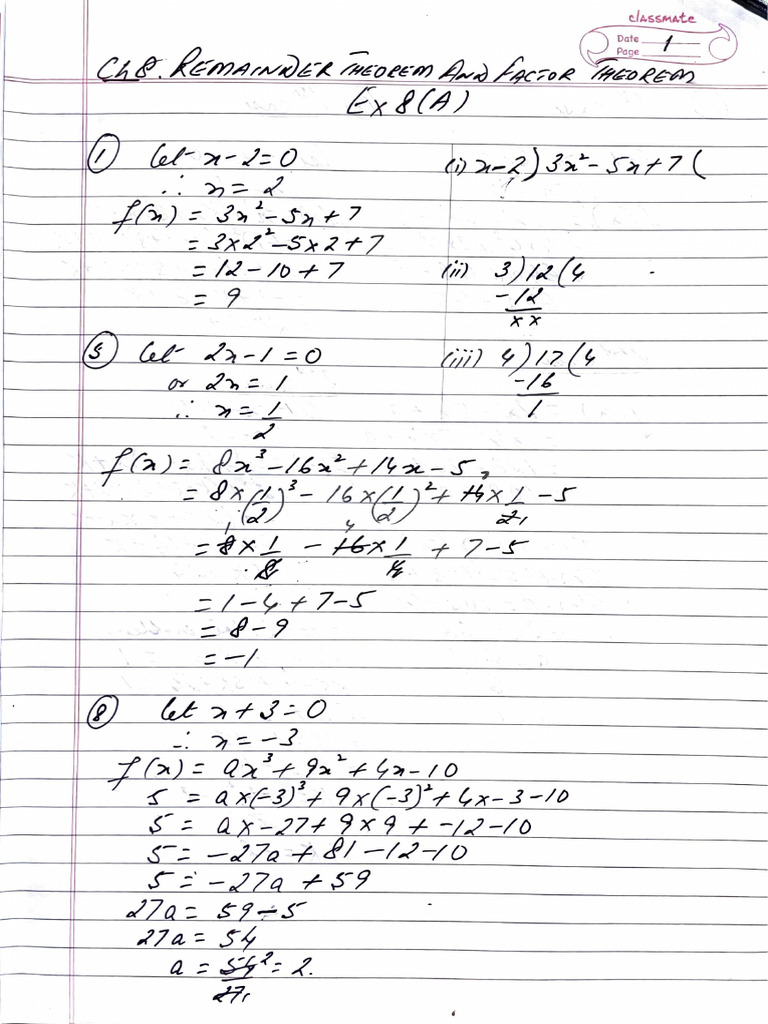 classmate
Date
Page 1
Ch 8. REMAINDER THEOREM AND FACTOR THEOREM
Ex 8(A)
① Let x-2=0
∴ x = 2
f(x) = 3x²-5x+7
= 3×2²-5×2+7
= 12-10+7
= 9
(i) x-2)3x²-5x+7(
(ii) 3)12(4
-12
xx
(iii) 4)17(4
-16
1
⑤ Let 2x-1=0
or 2x=1
∴ x=1/2
f(x) = 8x³-16x²+14x-5
= 8×(1/2)³-16×(1/2)²+14×1/2-5
= 8×1/8-16×1/4+7-5
= 1-4+7-5
= 8-9
= -1
⑧ Let x+3=0
∴ x=-3
f(x) = ax³+9x²+4x-10
5 = a×(-3)³+9×(-3)²+4×-3-10
5 = a×-27+9×9+-12-10
5 = -27a+81-12-10
5 = -27a+59
27a = 59-5
27a = 54
a = 54/27 = 2.